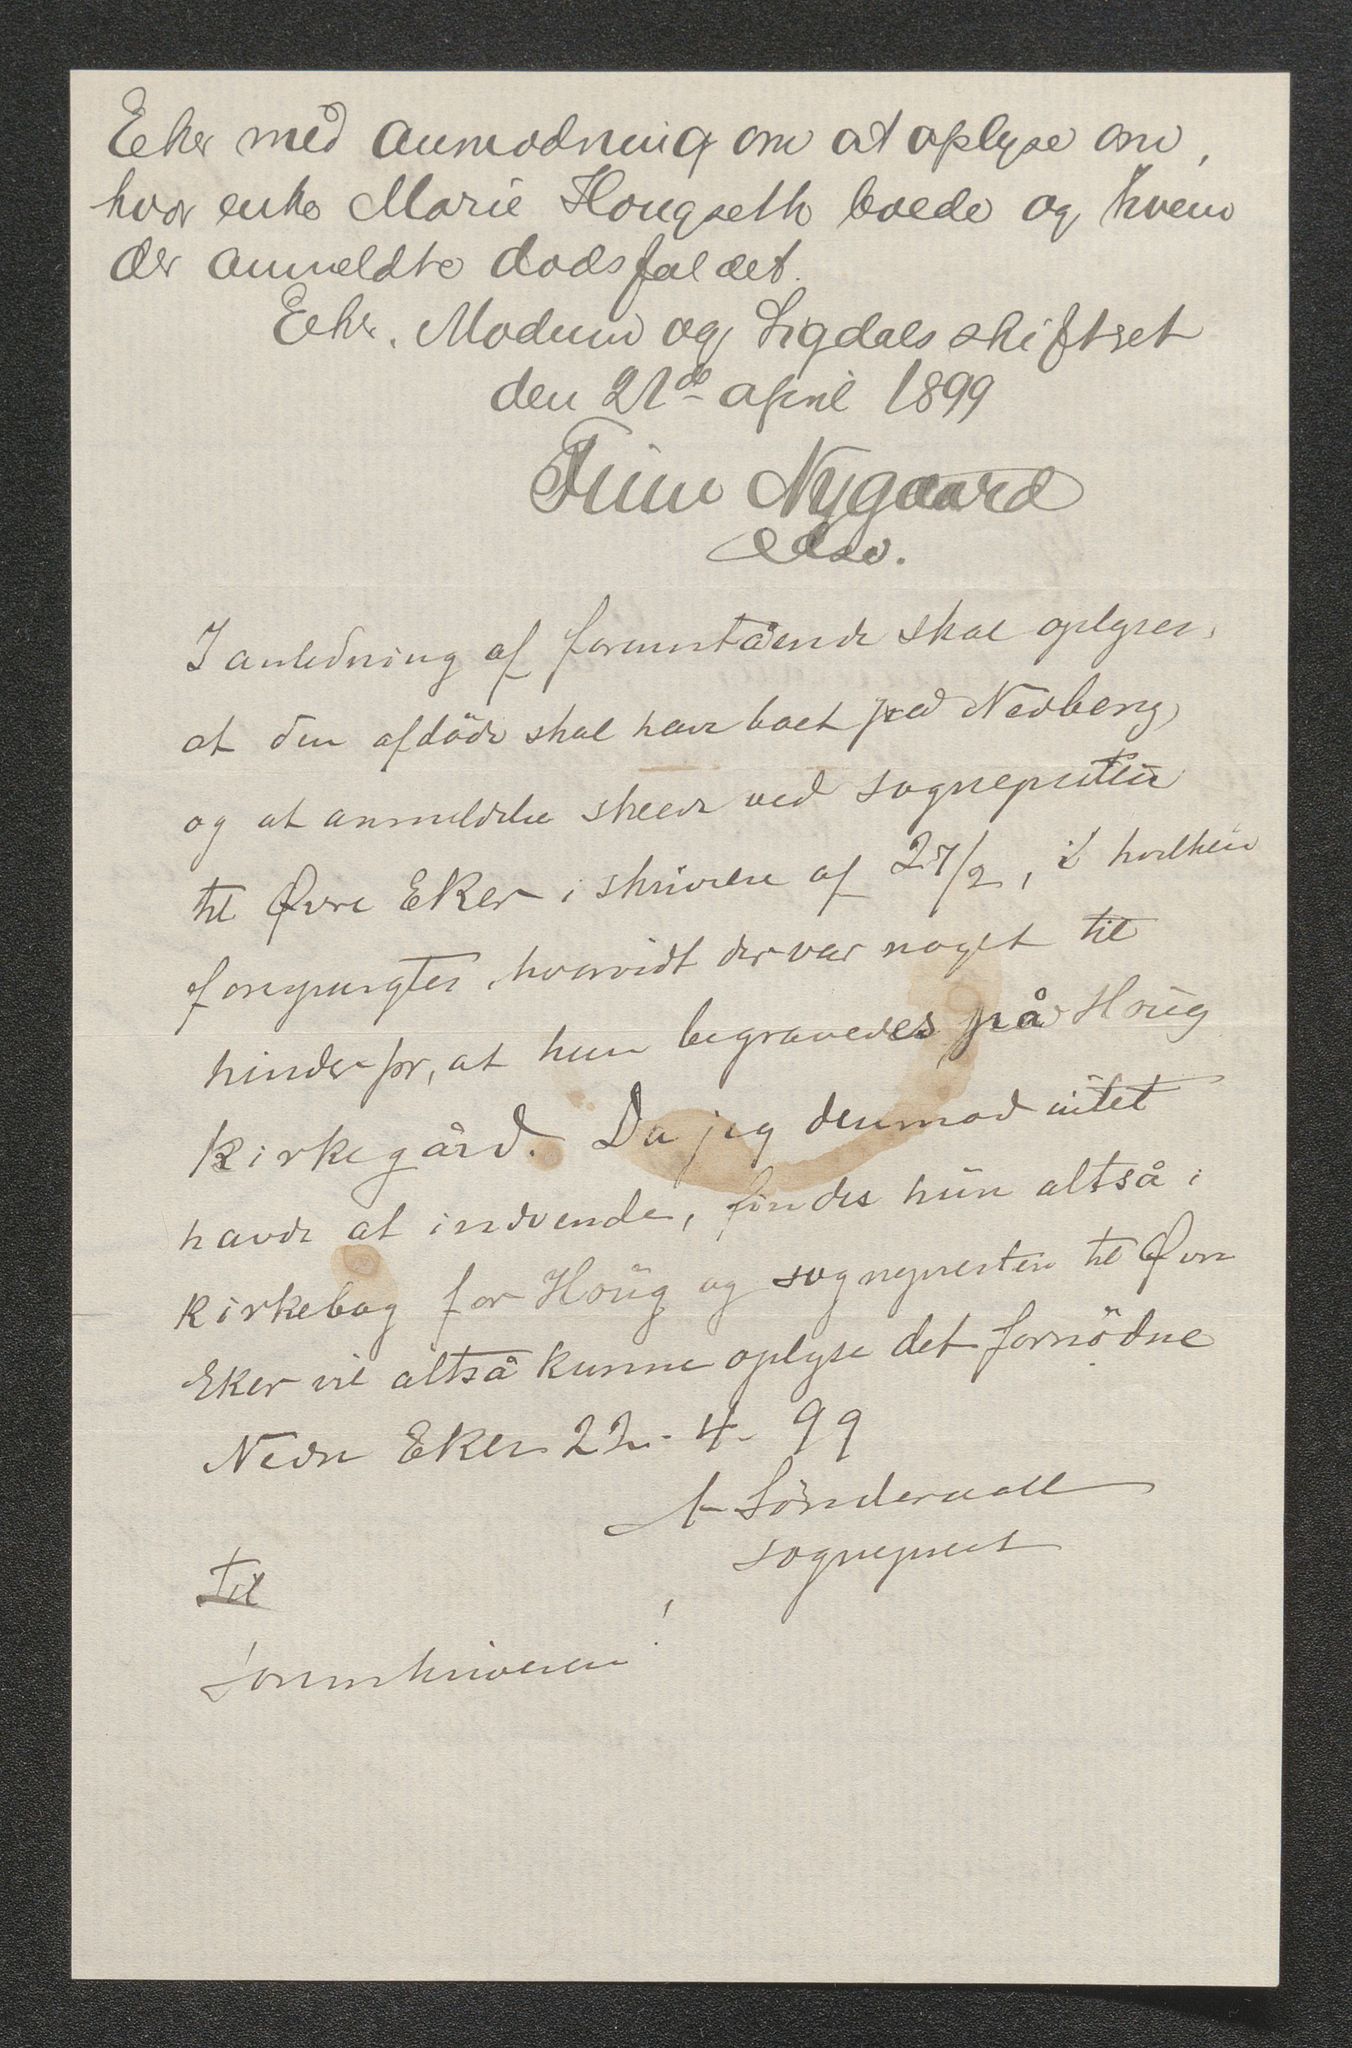 Eker med anmodning om at oplyse om,
hvor enke Marie Hougseth boede og hvem
der anmeldte dødsfaldet.
Eker, Modum og Sigdals skifteret
den 21de april 1899
Finn Nygaard
I anledning af foranstående skal oplyses,
at den afdöde skal have boet på Nedberg,
og at anmeldelse skede ved sognepresten
til Øvre Eker i skrivelse af 27/2, i hvilken
forespurgtes, hvorvidt der var noget til
hinder for, at hun begravedes på Houg
kirkegård. Da jeg derimod intet
havde at indvende, findes hun altså i
kirkebog for Houg og sognepresten til Øvre
Eker vil altså kunne oplyse det fornödne
Nedre Eker 22-4-99
A Sönderaall
sogneprest
Til
Sorenskriveren